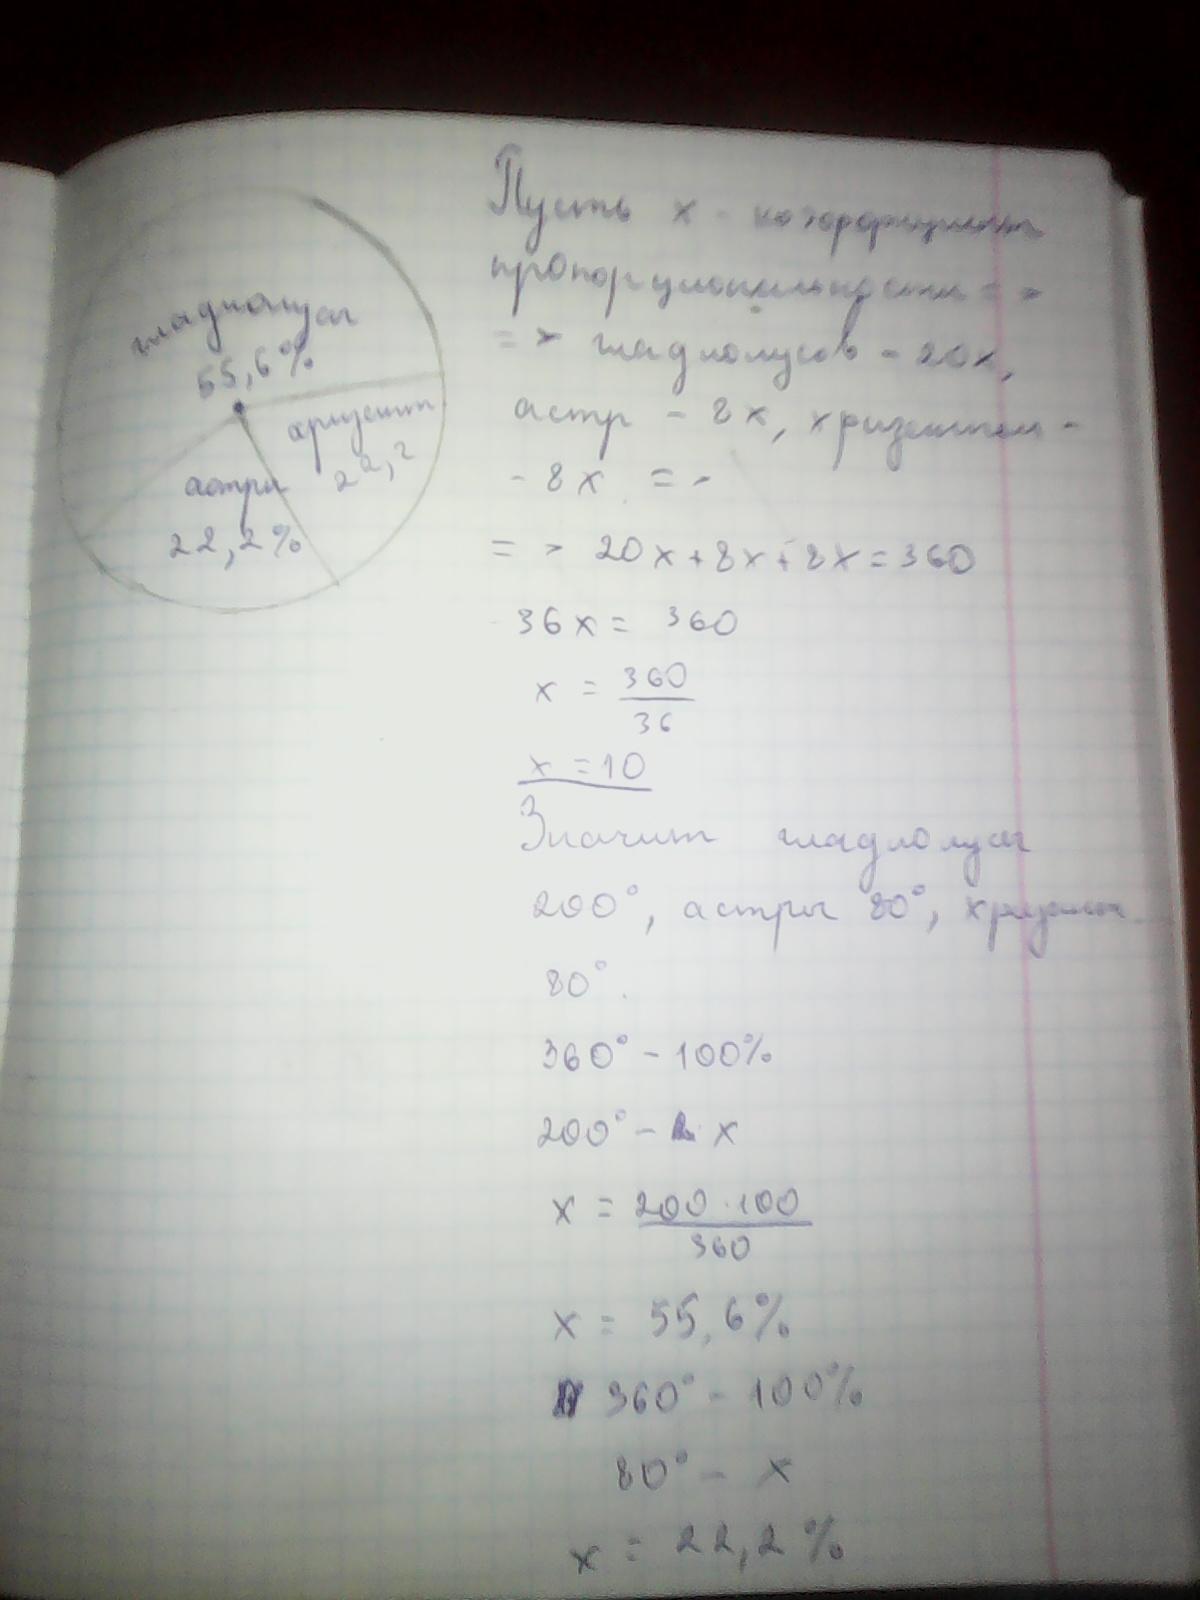 гладиолусы
55,6%
хризант.
22,2
астры
22,2%
Пусть х - коэффициент
пропорциональности =>
=> гладиолусов - 20х,
астр - 8х, хризантем -
- 8х. =>
=> 20х+8х+8х=360
36х = 360
х = 360
36
х = 10
Значит гладиолусы
200°, астры 80°, хризант.
80°.
360° - 100%
200° - х
х = 200 · 100
360
х = 55,6%
360° - 100%
80° - х
х = 22,2%